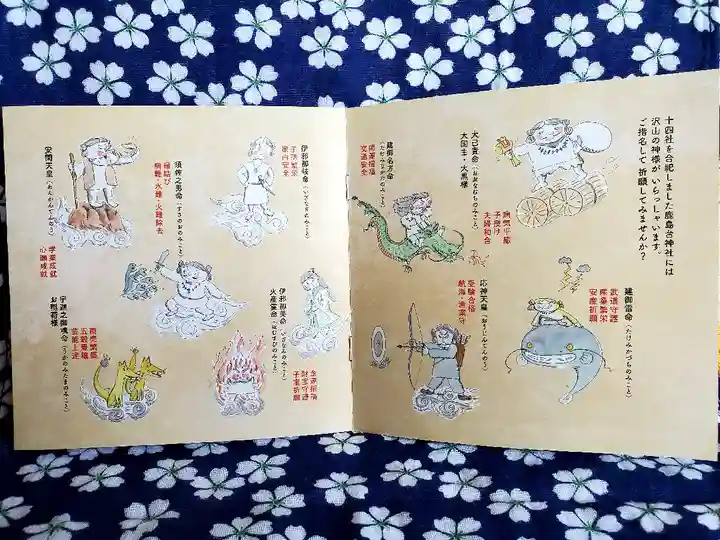 十四社を合祀しました鹿島台神社には
沢山の神様がいらっしゃいます。
ご指名して祈願してみませんか？
建御雷命（たけみかづちのみこと）
武道守護
産業繁栄
安産祈願
大己貴命（おおなむちのみこと）
大国主・大黒様
病気平癒
子授け
夫婦和合
応神天皇（おうじんてんのう）
受験合格
航海・漁業守
建御名方命（たけみなかたのみこと）
交通安全
伊邪那岐命（いざなぎのみこと）
子孫繁栄
家内安全
伊邪那美命（いざなみのみこと）
火産霊命（ほむすびのみこと）
金運招福
財宝守護
子宝祈願
須佐之男命（すさのおのみこと）
縁結び
病難・水難・火難除去
安閑天皇（あんかんてんのう）
学業成就
心願成就
宇迦之御魂命（うかのみたまのみこと）
お稲荷様
商売繁盛
五穀豊穣
芸能上達